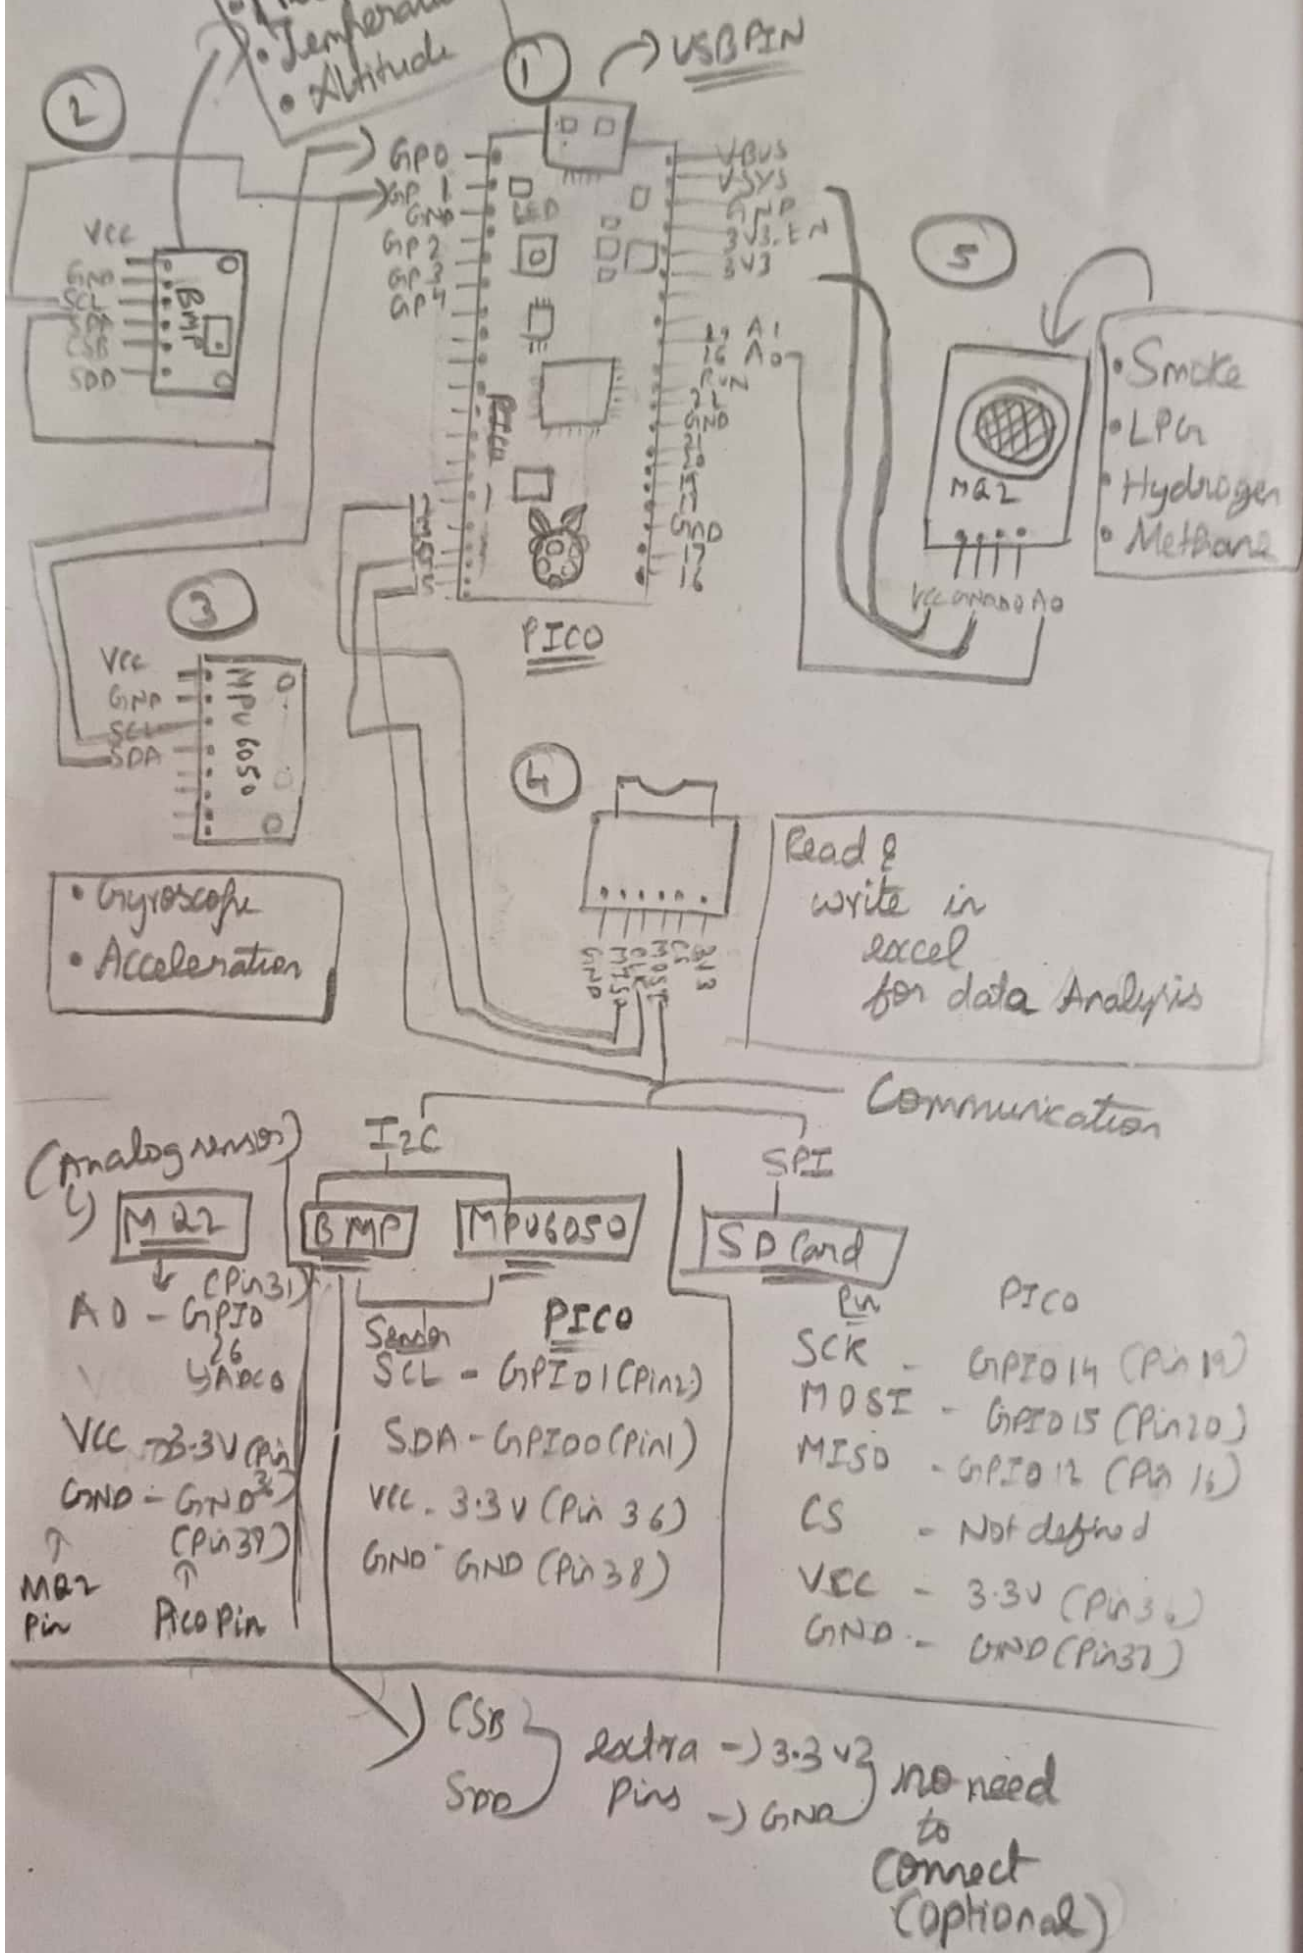 • Temperatu
• Altitude
1
USB PIN
2
GP0
GP 1
GND
GP2
GP 3
GP 4
LED
VBUS
VSYS
GND
3V3.EN
3V3
A1
A0
RUN
GND
GND
17
16
PICO
PICO
VCC
GND
SCL
CSB
SDD
BMP
5
MQ2
VCC GND D0 A0
• Smoke
• LPG
• Hydrogen
• Methane
3
VCC
GND
SCL
SDA
MPU 6050
• Gyroscope
• Acceleration
4
GND
MISO
CLK
MOSI
CS
3V3
Read &
write in
excel
for data Analysis
Communication
(Analog sensor)
MQ2
A0 - GPIO
(Pin 31)
26
ADC0
VCC → 3.3V (Pin
36)
GND - GND
MQ2
Pin
Pico Pin
I2C
BMP
MPU6050
Sensor
PICO
SCL - GPIO1 (Pin2)
SDA - GPIO0 (Pin1)
VCC - 3.3V (Pin 36)
GND - GND (Pin 38)
SPI
SD Card
Pin
PICO
SCK - GPIO14 (Pin 19)
MOSI - GPIO15 (Pin20)
MISO - GPIO12 (Pin 16)
CS - Not defined
VCC - 3.3V
GND - GND
CSB
SDD
extra
Pins
→ 3.3 V
→ GND
no need
to
connect
(optional)